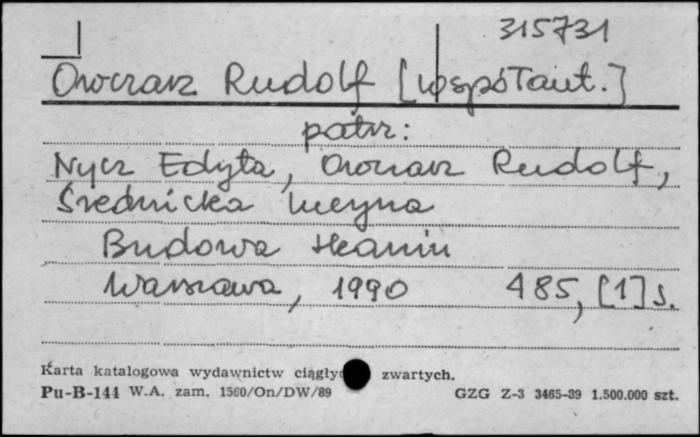 315731
Owczarz Rudolf [współaut.]
patrz:
Nycz Edyta, Owczarz Rudolf,
Średnicka Lucyna
Budowa tkanin
Warszawa, 1990 485, [1] s.
Karta katalogowa wydawnictw ciągłyc zwartych.
Pu-B-144 W.A. zam. 1560/On/DW/89 GZG Z-3 3465-89 1.500.000 szt.